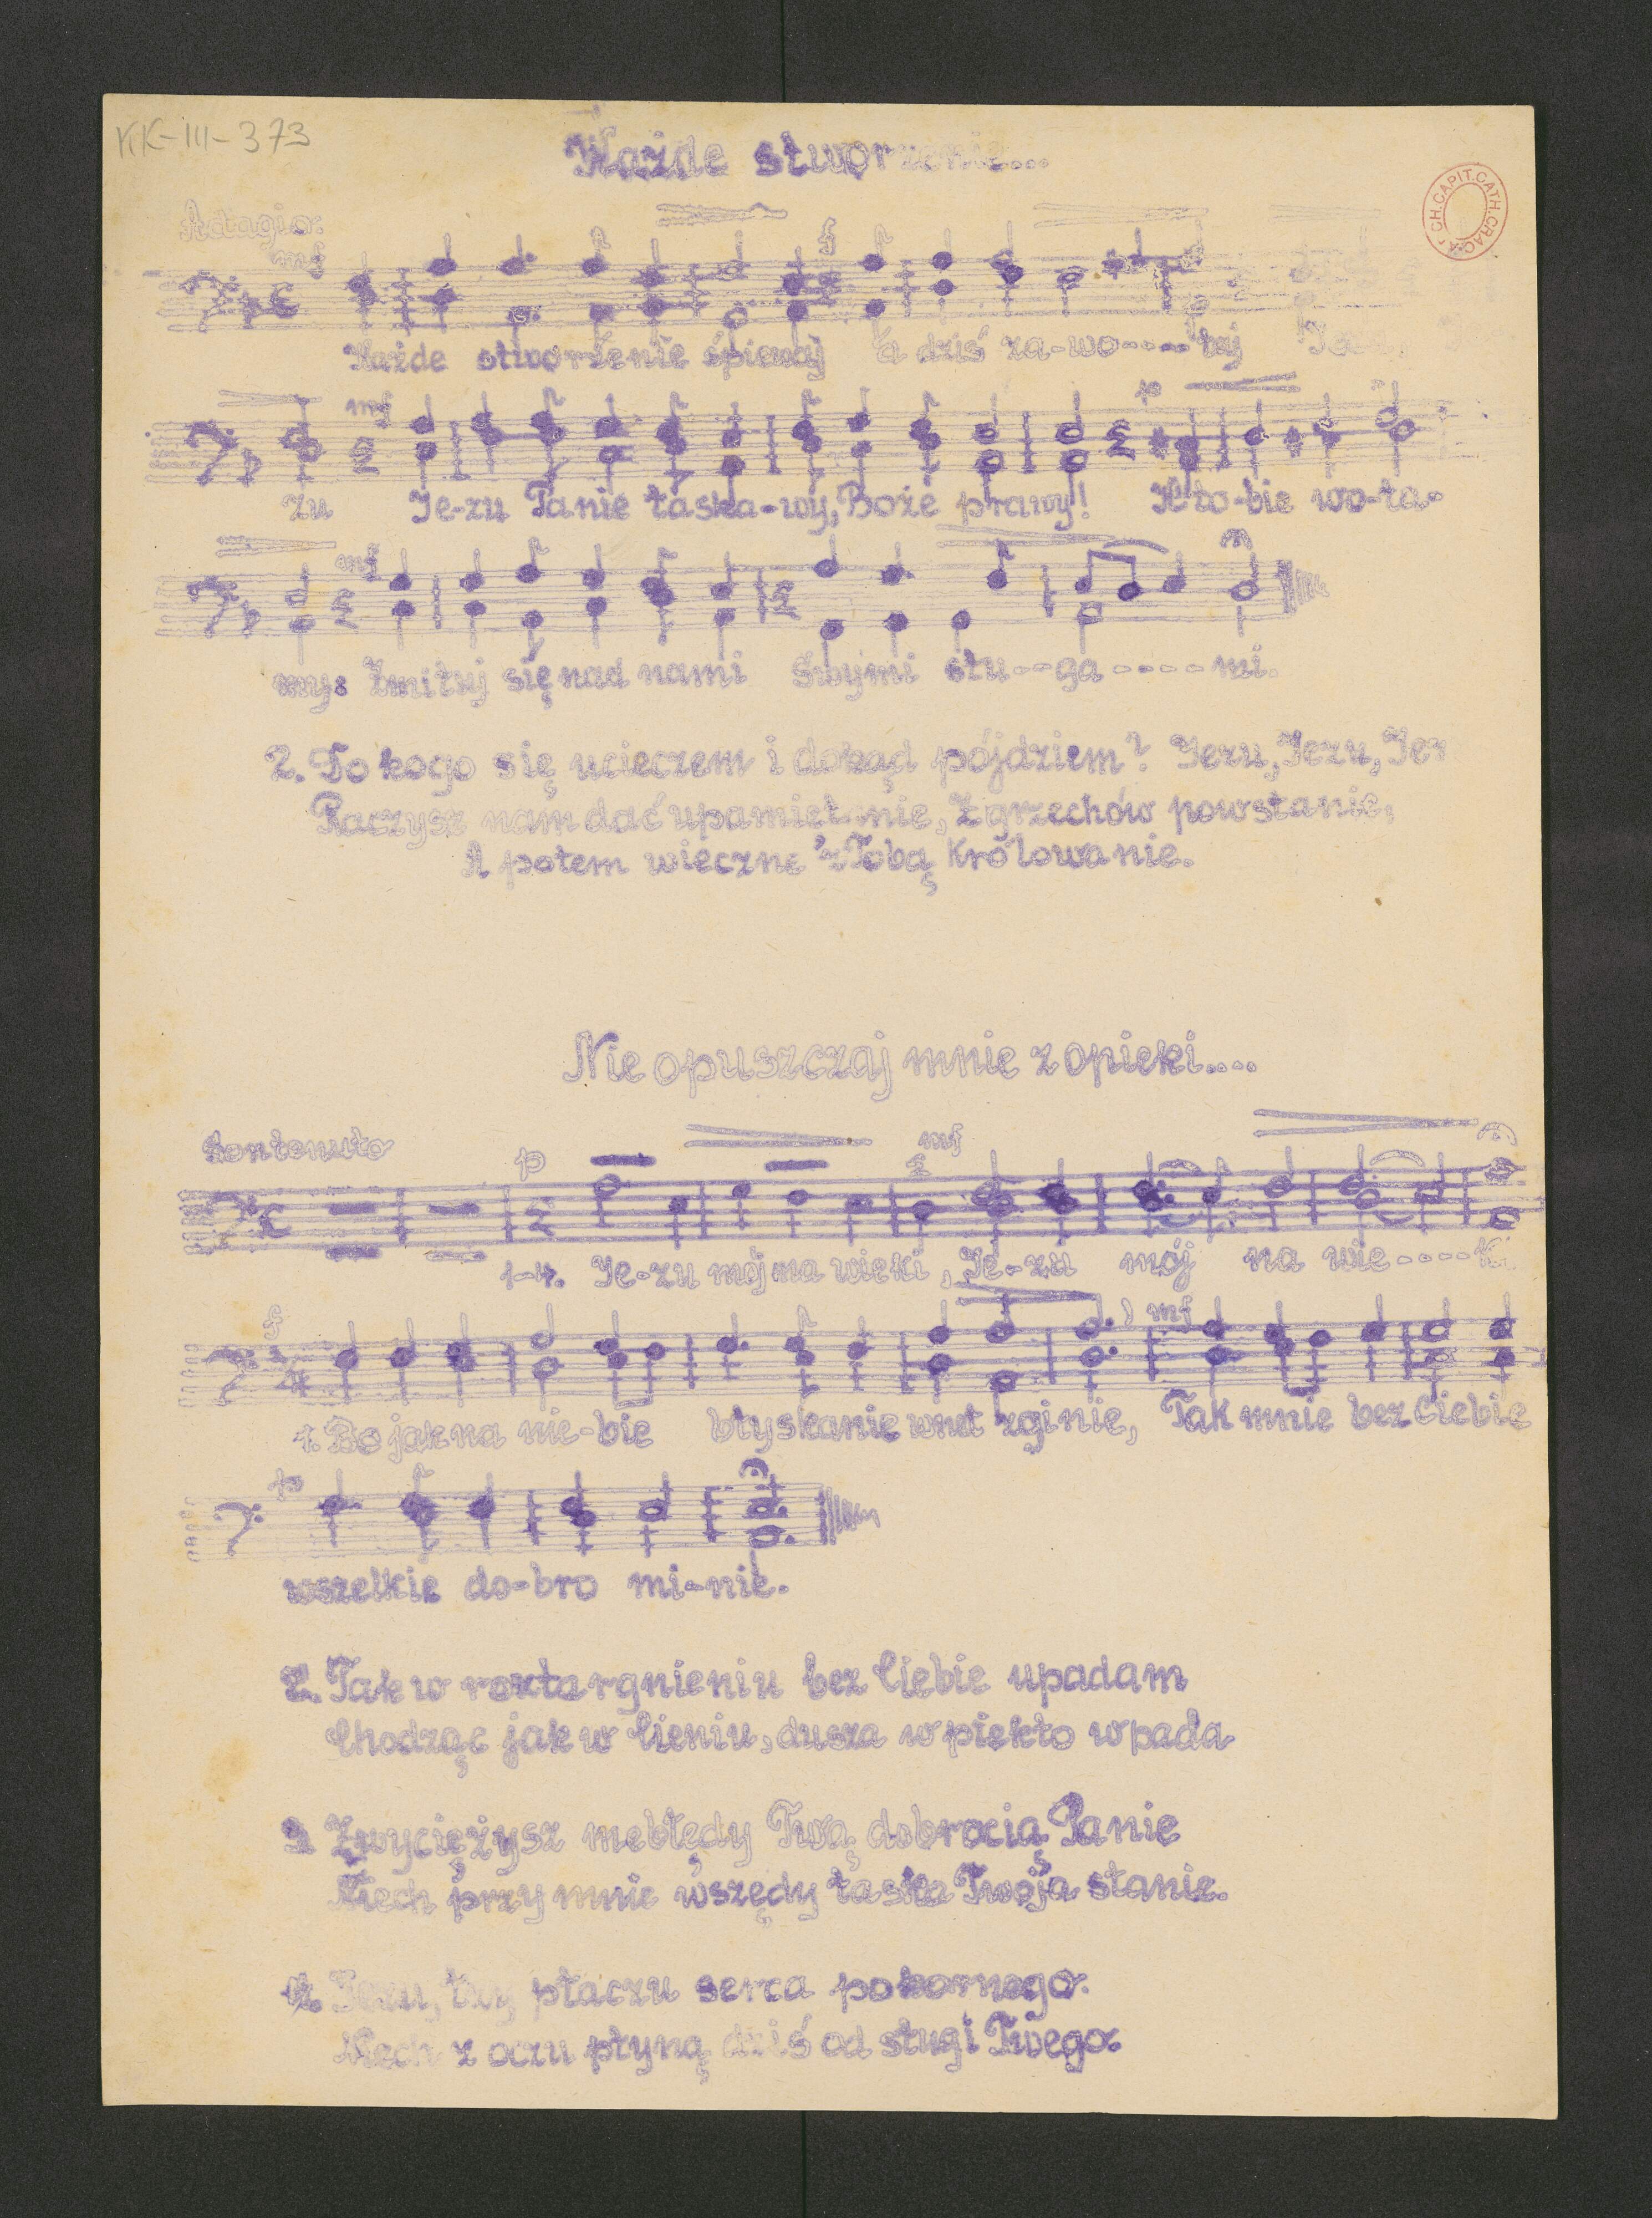 KK-III-373
Każde stworzenie...
CH.CAPIT.CATH.CRAC
Adagio.
mf
f
Każde stworzenie śpiewaj a dziś za-wo----łaj
mf
p
zu Je-zu Panie łaska-wy, Boże prawy! K'to-bie wo-ła-
mf
my: Zmiłuj się nad nami Swymi słu--ga----mi.
2. Do kogo się ucieczem i dokąd pójdziem? Jezu, Jezu, Jez
Raczysz nam dać upamiet-nie, Z grzechów powstanie,
A potem wieczne z Tobą Królowanie.
Nie opuszczaj mnie z opieki....
Sontenuto
p
mf
1-4. Je-zu mój na wieki, Je-zu mój na wie----ki
f
mf
1. Bo jak na nie-bie błyskanie wnet zginie, Tak mnie bez Ciebie
p
wszelkie do-bro mi-nie.
2. Tak w roztargnieniu bez Ciebie upadam
Chodząc jak w Cieniu, dusza w piekło wpada
3 Zwyciężysz me błędy Twą dobrocią Panie
Niech przy mnie wszędy łaska Twoja stanie.
4. Jezu, łzy płaczu serca pokornego.
Niech z oczu płyną dziś od sługi Twego.